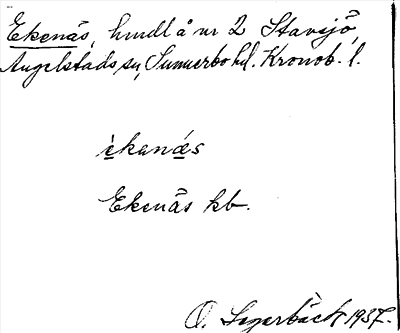 Ekenäs, hmdl å nr 2 Stavsjö,
Angelstads sn, Sunnerbo hd. Kronob. l.
èkenä́s
Ekenäs kb.
O. Segerbäck 1937.